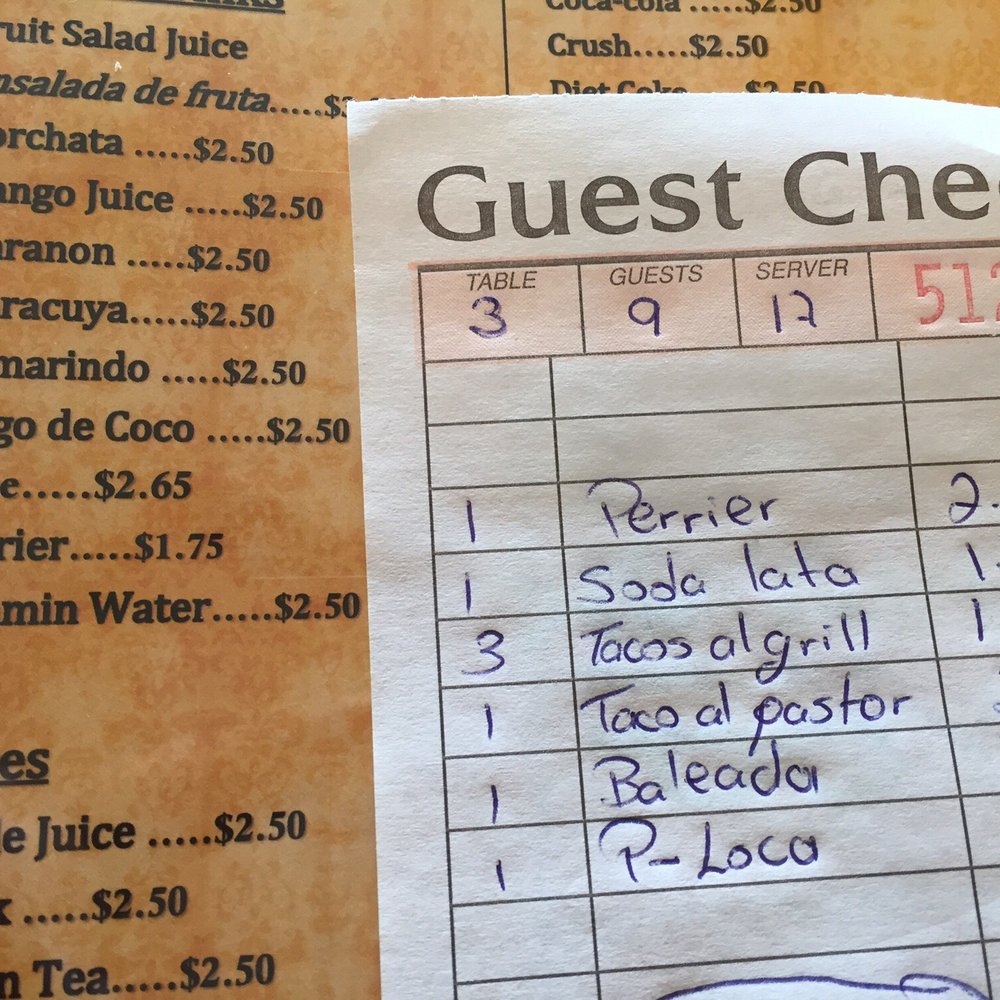 ruit Salad Juice
nsalada de fruta.....$3
orchata .....$2.50
ango Juice .....$2.50
aranon .....$2.50
racuya.....$2.50
marindo .....$2.50
go de Coco .....$2.50
e.....$2.65
rier.....$1.75
min Water.....$2.50
es
le Juice .....$2.50
k .....$2.50
n Tea.....$2.50
Coca-cola .....$2.50
Crush.....$2.50
Diet Coke .....$2.50
Guest Che
TABLE GUESTS SERVER
3 9 12 512
1 Perrier 2.
1 Soda lata 1.
3 Tacos al grill 1
1 Taco al pastor
1 Baleada
1 P-Loca